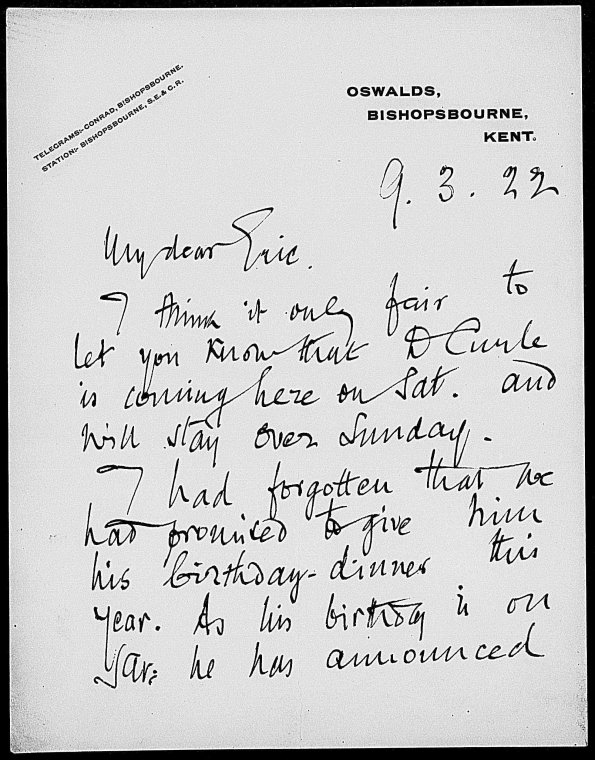 TELEGRAMS:- CONRAD, BISHOPSBOURNE.
STATION:- BISHOPSBOURNE, S.E. & C.R.
OSWALDS,
BISHOPSBOURNE,
KENT.
9. 3. 22
My dear Eric.
I think it only fair to
let you know that D Curle
is coming here on Sat. and
will stay over Sunday.
I had forgotten that we
had promised to give him
his birthday-dinner this
year. As his birthday is on
Sat: he has announced